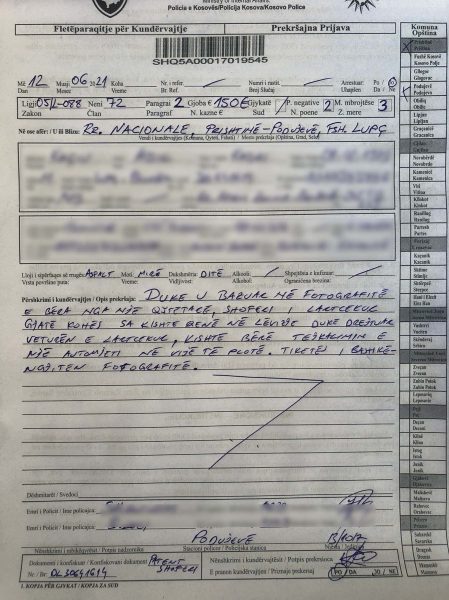 Ministry of Internal Affairs
Policia e Kosovës/Policija Kosova/Kosovo Police
Fletëparaqitje për Kundërvajtje Prekršajna Prijava
SHQ5A00017019545
Më 12 Muaji 06 2021 Koha Nr. i refer. Numri i rastit. Arrestuar: Po
Dan Meser Vreme Br. Ref. Broj Slučaj Uhapšen Da / Ne
Ligji 05/L-088 Neni 72 Paragrafi 2 Gjoba € 150€ Gjykatë P. negative 2 M. mbrojtëse 3
Zakon Član N. kazne € Sud N. poene Z. mere
Në ose afër: / U ili Blizu: RR. NACIONALE, PRISHTINË-PODUJEVË, FSH. LUPÇ
Vendi i kundërvajtjes (Komuna, Qyteti, Fshati) / Mesto prekršaja (Opština, Grad, Selo)
Lloji i sipërfaqes së rrugës ASFALT Moti MIRË Dukshmëria DITË Alkooli Shpejtësia e kufizuar
Vrsta površine puta: Vreme: Vidljivost: Alkohol: Ograničena brzina:
Përshkrimi i kundërvajtjes / Opis prekršaja: DUKE U BAZUAR NË FOTOGRAFITË
E BËRA NGA NJË QYTETAR, SHOFERI I LARTCEKUR
GJATË KOHËS SA KISHTE QENË NË LËVIZJE DUKE DREJTUAR
VETURËN E LARTCEKUR, KISHTE BËRË TEJKALIMIN E
NJË AUTOMJETI NË VIJË TË PLOTË. TIKETËS I BASHKË-
NGJITEN FOTOGRAFITË.
Dëshmitarët / Svedoci
Emri i Policit / Ime policajca:
Emri i Policit / Ime policajca:
PODUJEVË
Nënshkrimi i mbikëqyrësit / Potpis nadzornika Stacioni policor / Policijska stanica Njësia / Jedinica
Dokumenti i konfiskuar / Konfiskovani dokument PATENT SHOFERI Nënshkrimi i kundërvajtësit / Potpis prekršioca
Nr / Br DL30641614 E pranon kundërvajtjen / Priznaje prekršaj PO / DA JO / NE
1. KOPJA PËR GJYKATË / KOPIJA ZA SUD
Komuna
Opština
Prishtinë
Priština
Fushë Kosovë
Kosovo Polje
Gllogoc
Glogovac
Podujevë
Podujevo
Obiliq
Obilić
Lipjan
Lipljan
Graçanicë
Gračanica
Gjilan
Gnjilane
Novobërdë
Novobrdo
Kamenicë
Kamenica
Viti
Vitina
Kllokot
Klokot
Ranillug
Ranilug
Partesh
Parteš
Kaçanik
Kačanik
Shtime
Štimlje
Shtërpcë
Štrpce
Hani i Elezit
Vushtrri
Vučitrn
Skënderaj
Srbica
Zveçan
Zvečan
Zubin Potok
Zubin Potok
Leposaviq
Leposavić
Pejë
Peć
Deçan
Dečani
Klinë
Klina
Istog
Istok
Junik
Junik
Gjakovë
Đakovica
Malishevë
Mališevo
Rahovec
Orahovac
Prizren
Prizren
Suharekë
Suva Reka
Dragash
Dragaš
Mamushë
Mamuša